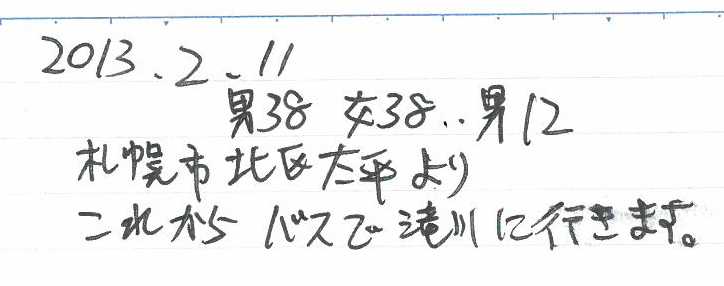 2013.2.11
男38 女38..男12
札幌市北区太平より
これから バスで滝川に行きます。